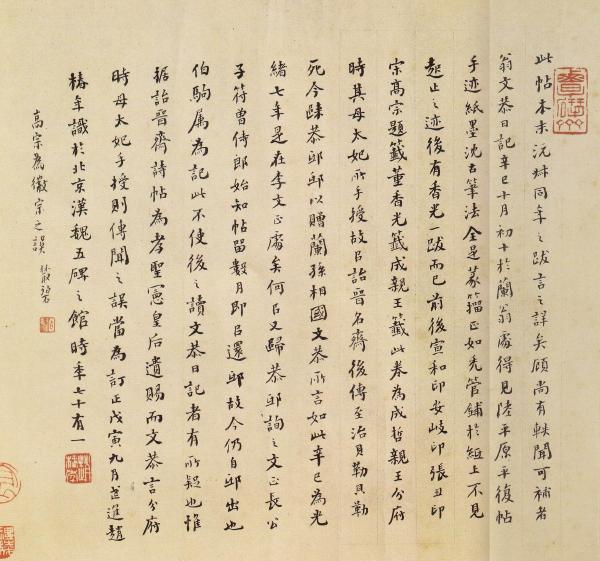 此帖本末沅叔同年之跋言之詳矣顧尚有軼聞可補者
翁文恭日記辛巳十月初十於蘭翁處得見陸平原平復帖
手迹紙墨沈古筆法全是篆籀正如禿管鋪於紙上不見
起止之迹後有香光一跋而已前後宣和印安岐印張丑印
宋高宗題籤董香光籤成親王籤此卷為成哲親王分府
時其母太妃所手授故以詒晉名齋後傳至治貝勒貝勒
死今歸恭邸邸以贈蘭孫相國文恭所言如此辛巳為光
緒七年是在李文正處矣何以又歸恭邸詢之文正長公
子符曾侍郎始知帖留數月即以還邸故今仍自邸出也
伯駒属為記此不使後之讀文恭日記者有所疑也惟
據詒晉齋詩帖為孝聖憲皇后遺賜而文恭言分府
時母太妃手授則傳聞之誤當為訂正戊寅九月武進趙
椿年識於北京漢魏五碑之館時年七十有一
高宗為徽宗之誤